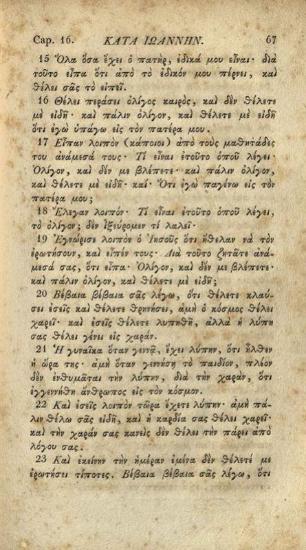 Cap. 16. ΚΑΤΑ ΙΩΑΝΝΗΝ. 67
15 Ὅλα ὅσα ἔχει ὁ πατὴρ, ἐδικά μου εἶναι· διὰ
τοῦτο εἶπα ὅτι ἀπὸ τὸ ἐδικόν μου πέρνει, καὶ
θέλει σᾶς τὸ εἰπεῖ.
16 Θέλει περάσει ὀλίγος καιρὸς, καὶ δὲν θέλετε
μὲ εἰδῆ· καὶ πάλιν ὀλίγον, καὶ θέλετε μὲ εἰδῆ·
ὅτι ἐγὼ ὑπάγω εἰς τὸν πατέρα μου.
17 Εἶπαν λοιπὸν (κάποιοι) ἀπὸ τοὺς μαθητάδες
του ἀνάμεσά τους· Τί εἶναι ἐτοῦτο ὁποῦ λέγει·
Ὀλίγον, καὶ δὲν μὲ βλέπετε· καὶ πάλιν ὀλίγον,
καὶ θέλετε μὲ εἰδῆ· καί· Ὅτι ἐγὼ παγένω εἰς τὸν
πατέρα μου;
18 Ἔλεγαν λοιπόν· Τί εἶναι ἐτοῦτο ὁποῦ λέγει,
τὸ ὀλίγον; δὲν ἰξεύρομεν τί λαλεῖ·
19 Ἐγνώρισε λοιπὸν ὁ Ἰησοῦς ὅτι ἤθελαν νὰ τὸν
ἐρωτήσουν, καὶ εἶπέν τους· Διὰ τοῦτο ζητᾶτε ἀνά-
μεσά σας, ὅτι εἶπα· Ὀλίγον, καὶ δὲν μὲ βλέπετε·
καὶ πάλιν ὀλίγον, καὶ θέλετε μὲ εἰδῆ;
20 Βέβαια βέβαια σᾶς λέγω, ὅτι θέλετε κλαύ-
σει ἐσεῖς καὶ θέλετε θρηνήσει, ἀμὴ ὁ κόσμος θέλει
χαρεῖ· καὶ ἐσεῖς θέλετε λυπηθῆ, ἀλλὰ ἡ λύπη
σας θέλει γένει εἰς χαράν.
21 Ἡ γυναῖκα ὅταν γεννᾷ, ἔχει λύπην, ὅτι ἦλθεν
ἡ ὥρα της· ἀμὴ ὅταν γεννήσῃ τὸ παιδίον, πλέον
δὲν ἐνθυμᾶται τὴν λύπην, διὰ τὴν χαρὰν, ὅτι
ἐγεννήθη ἄνθρωπος εἰς τὸν κόσμον.
22 Καὶ ἐσεῖς λοιπὸν τώρα ἔχετε λύπην· ἀμὴ πά-
λιν θέλω σᾶς εἰδῆ, καὶ ἡ καρδία σας θέλει χαρεῖ·
καὶ τὴν χαράν σας κανεὶς δὲν θέλει τὴν πάρει ἀπὸ
λόγου σας.
23 Καὶ ἐκείνην τὴν ἡμέραν ἐμένα δὲν θέλετε μὲ
ἐρωτήσει τίποτες. Βέβαια βέβαια σᾶς λέγω, ὅτι